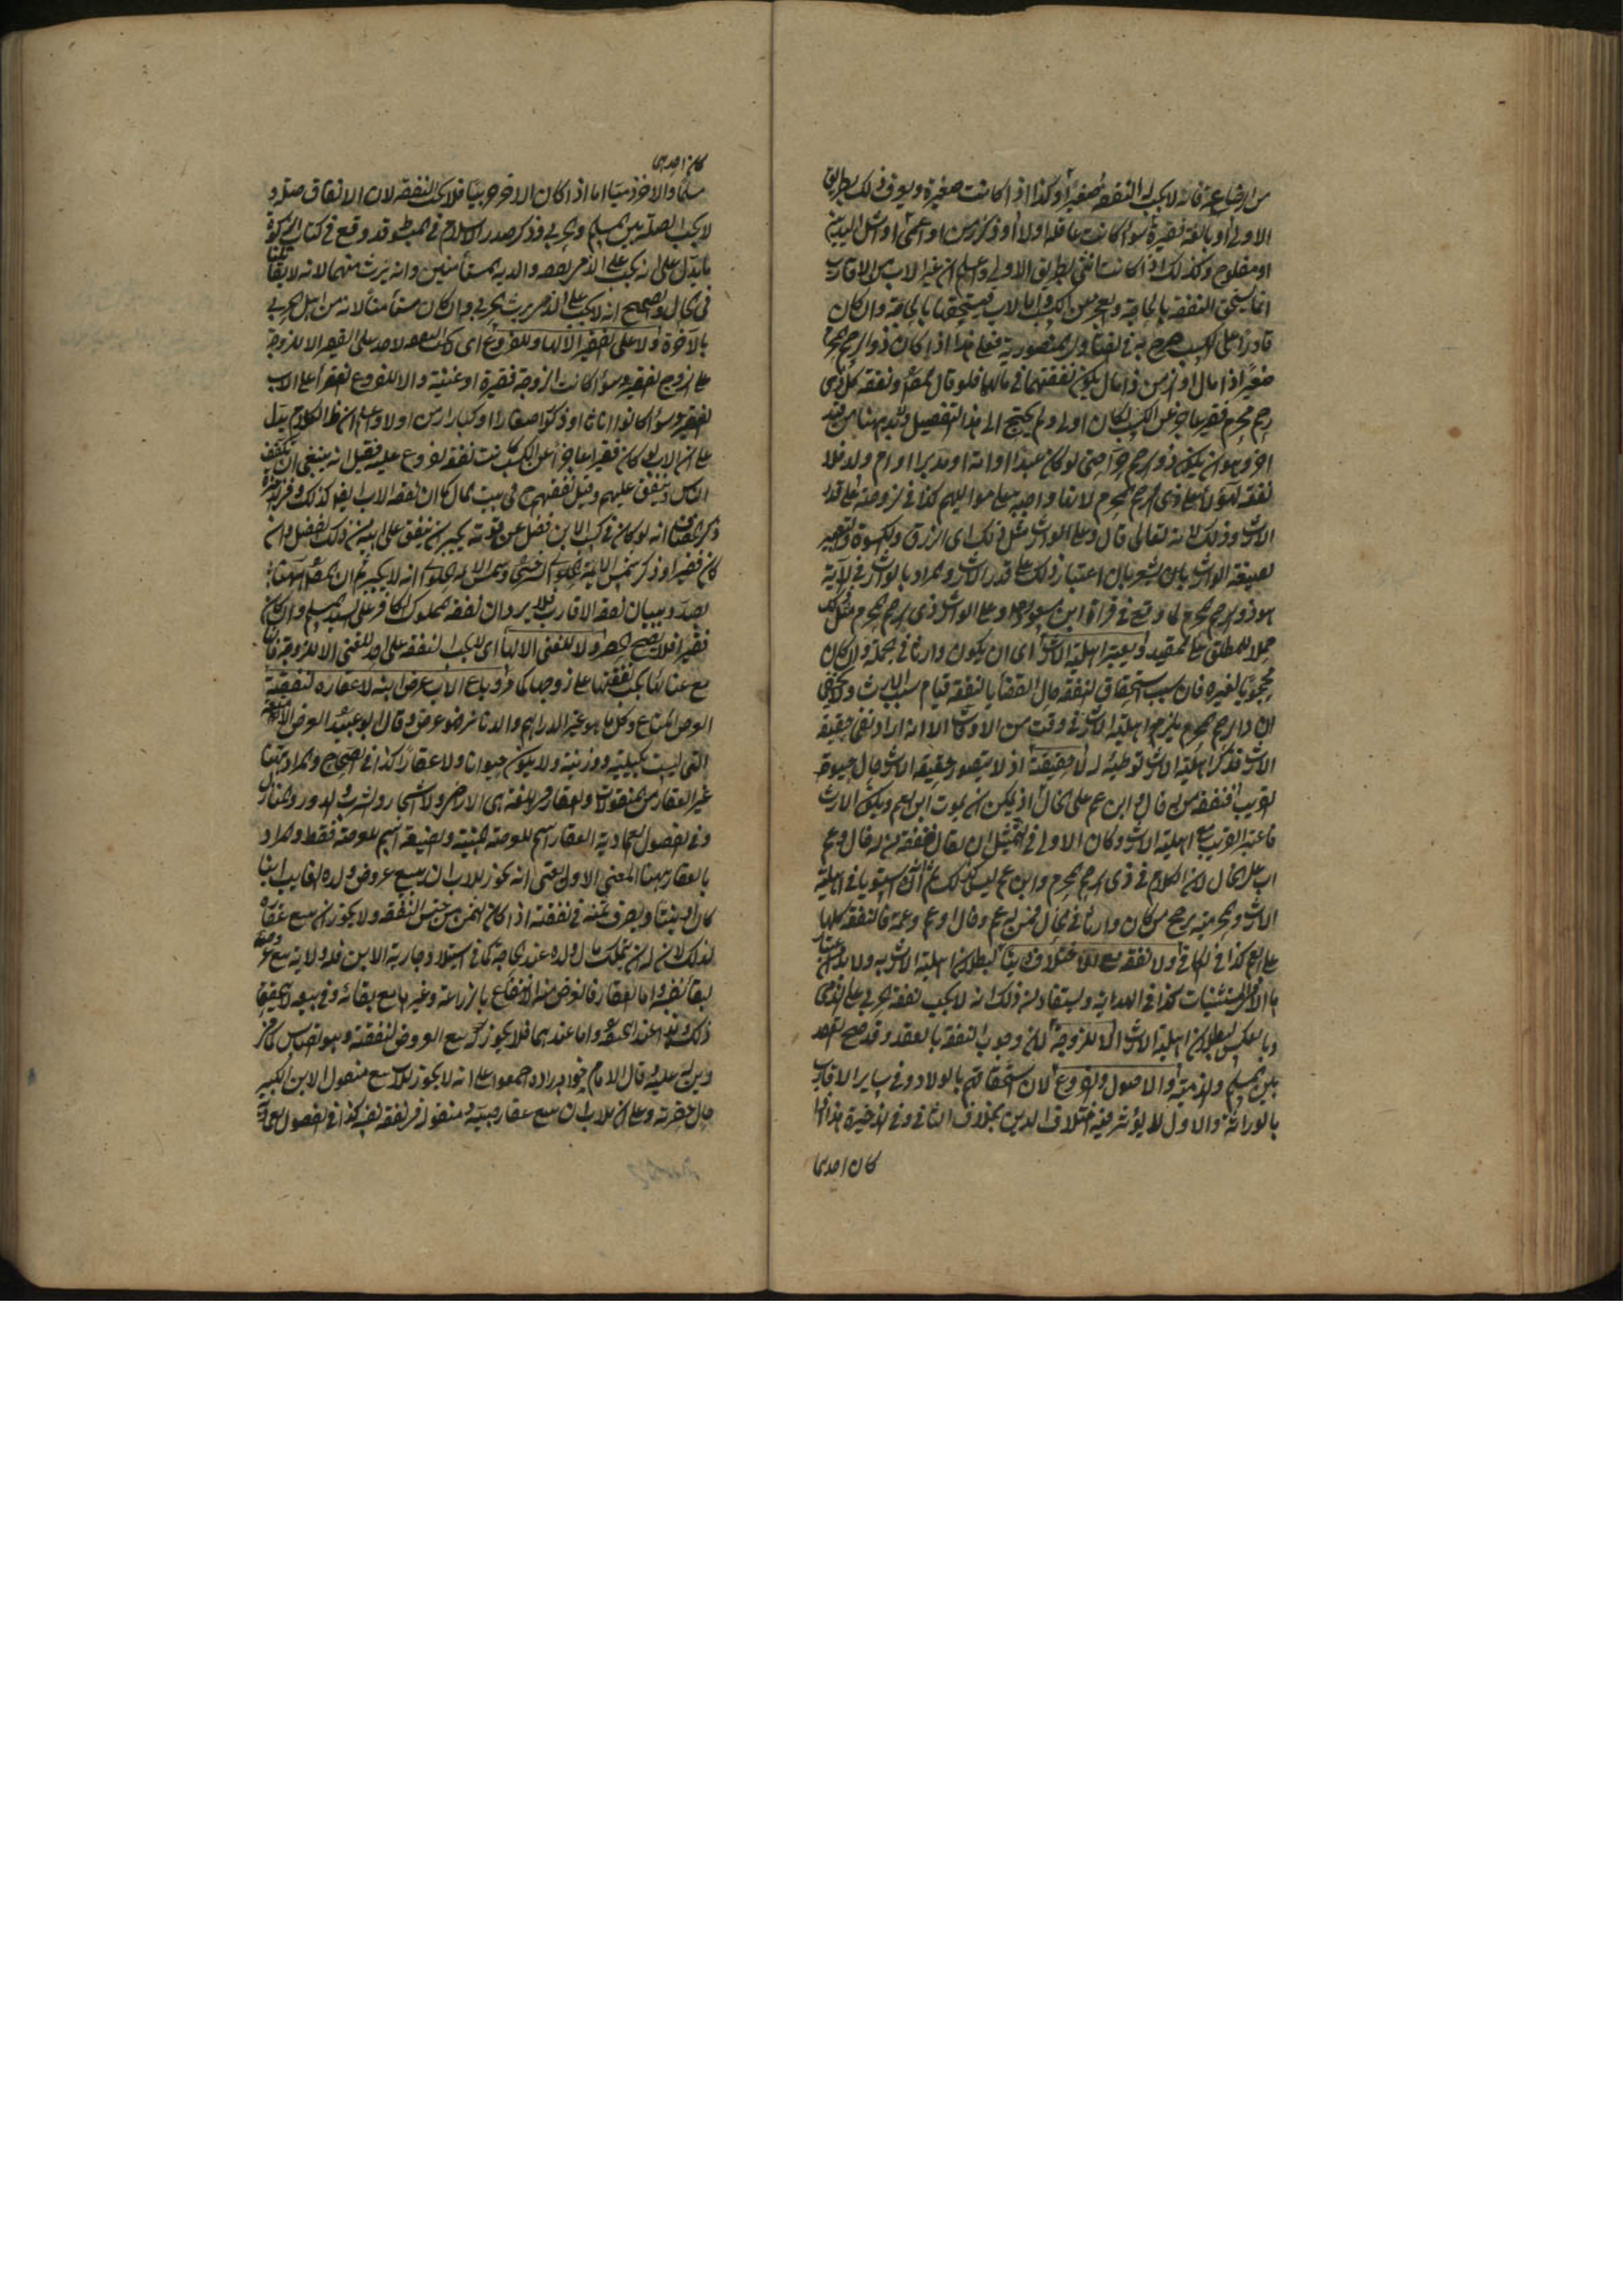 من ارضاع عمة فانه لا يجب له النفقة صغيرا وكذا اذا كانت صغيرة ويعرف ذلك بطريق
الاولى او بالغة فقيرة سواء كانت عاقلة اولا او ذكر زمن او اعمى او اشل اليدين
او مفلوج وكذلك اذا كانت انثى بطريق الاولى واعلم ان غير الاب من الاقارب
انما يستحق النفقة بالحاجة والعجز عن الكسب واما الاب فيستحقها بالحاجة وان كان
قادرا على الكسب صرح به في
صغيرا ذا مال او زمن ذا مال يكون نفقتهما في مالهما فلو قال المص ونفقة كل ذي
رحم محرم فقير عاجز عن الكسب لكان اولى ولم يحتج الى هذا التفصيل ولابد ههنا من قيد
اخر وهو ان يكون ذو الرحم حرا حتى لو كان عبدا او امة او مدبرا او ام ولد فلا
نفقة لهؤلاء على ذي الرحم المحرم لانها واجبة على مواليهم كذا في
الارث وذلك لانه تعالى قال وعلى الوارث مثل ذلك اى الرزق والكسوة والتعبير
بصيغة الوارث يشعر بان اعتبار ذلك على قدر الارث والمراد بالوارث في الاية
هو ذو الرحم المحرم لما وقع في قراءة ابن مسعود وعلى الوارث ذى الرحم المحرم مثل ذلك
حملا للمطلق على المقيد ويعتبر اهلية الارث اى ان يكون وارثا في الجملة وان كان
محجوبا لغيره فان سبب استحقاق النفقة حال القضاء بالنفقة قيام سبب الارث ولا يخفى
ان ذا رحم محرم يلزم اهلية الارث في وقت من الاوقات الا انه اراد نفى حقيقة
الارث فذكر اهلية الارث توطية له لا حقيقته اذ لا يتصور حقيقة الارث حال حيوة
القريب فنفقة من له خال وابن عم على الخال اذ يمكن ان يموت ابن العم ويكون الارث
فاعتبر القريب مع اهلية الارث وكان الاولى في التمثيل ان يقال نفقة من له خال وعم
اب على الخال لان الكلام في ذى الرحم المحرم وابن عم ليس كذلك ثم اذا استويا في اهلية
الارث والمحرمية يرجح من كان وارثا في الحال فمن له عم وخال او عم وعمة فالنفقة كلها
على العم كذا في الكافى ولا نفقة مع الاختلاف دينا لبطلان اهلية الارث به ولا بد من
المستثنيات كذا في الهداية ويستفاد منه ذلك انه لا يجب نفقة الحربى على الذمى
وبالعكس لبطلان اهلية الارث الا للزوجة لان وجوب النفقة بالعقد وقد صح العقد
بين المسلم والذمية والاصول والفروع لان استحقاقهم بالولاد وفي سائر الاقارب
بالوراثة والاول لا يؤثر فيه اختلاف الدين بخلاف الثانى وفي الذخيرة هذا اذا
كان احدهما
كان احدهما
مسلما والاخر ذميا اما اذا كان الاخر حربيا فلا يجب النفقة لان الانفاق صلة و
لا يجب الصلة بين المسلم والحربى وذكر صدر الاسلام في المبسوط قد وقع في كتاب الزكوة
ما يدل على انه يجب على الذمى نفقة والديه المستأمنين وانه يرث منهما لانه لا بقاء
في الحال والصحيح انه لا يجب على الذمى يرث الحربى وان كان مستأمنا لانه من اهل الحرب
بالاخرة ولا على الفقير الا لها وللفروع اى لا يجب النفقة لاحد على الفقير الا للزوجة
على الزوج الفقير سواء كانت الزوجة فقيرة او غنية والا للفروع الفقراء على الاب
الفقير سواء كانوا اناثا او ذكورا صغارا او كبارا زمن اولا واعلم ان ظاهر الكلام يدل
على ان الاب لو كان فقيرا عاجزا عن الكسب كانت نفقة الفروع عليه فقيل انه ينبغى ان يتكفف
الناس وينفق عليهم وقيل نفقتهم في بيت المال كما ان نفقة الاب ايضا كذلك
ذكر الخصاف انه لو كان في كسب الابن فضل عن قوته يجبر ان ينفق على ابيه من ذلك الفضل وان
كان فقيرا وذكر شمس الائمة السرخسى وشمس الائمة الحلوانى انه لا يجبر ثم ان المصنف ههنا
بصدد بيان نفقة الاقارب فلا يرد ان نفقة المملوك الكافر على السيد المسلم وان كان
فقيرا فلا يصح الحصر ولا للغنى الا لها اى لا يجب النفقة على احد للغنى الا للزوجة فانها
مع غنائها يجب نفقتها على زوجها كما مر وباع الاب عرض ابنه لا عقاره لنفقته
العرض المتاع وكل ما هو غير الدراهم والدنانير فهو عرض وقال ابو عبيد العرض الامتعة
التى ليست بكيلية ووزنية ولا يكون حيوانا ولا عقارا كذا في الصحاح والمراد ههنا
غير العقار من المنقولات والعقار في اللغة هى الارض والاشجار والشرب والدور والمنازل
وفي الفصول العمادية العقار اسم للعرصة المبنية والضيعة اسم للعرصة فقط والمراد
بالعقار ههنا المعنى الاول يعنى انه يجوز للاب ان يبيع عروض ولده الغائب ابنا
كان او بنتا ويصرف ثمنه في نفقته اذا كان الثمن من جنس النفقة ولا يجوز ان يبيع عقاره
لذلك لان له ان يتملك مال ولده عند الحاجة كما في استيلاد جارية الابن فله ولاية بيع عرضه
لبقاء نفسه واما العقار فالغرض منه الانتفاع بالزراعة وغيرها مع بقائه وفي بيعه لا يتحقق
ذلك وهذا عند ابى حنيفة واما عندهما فلا يجوز له بيع العروض لنفقته وهو القياس كما في
دين له عليه وقال الامام خواهرزاده اجمعوا على انه لا يجوز للاب بيع منقول الابن الكبير
حال حضرته وعلى ان للاب ان يبيع عقار صبيه ومنقوله في نفقة نفسه كذا في الفصول العمادية